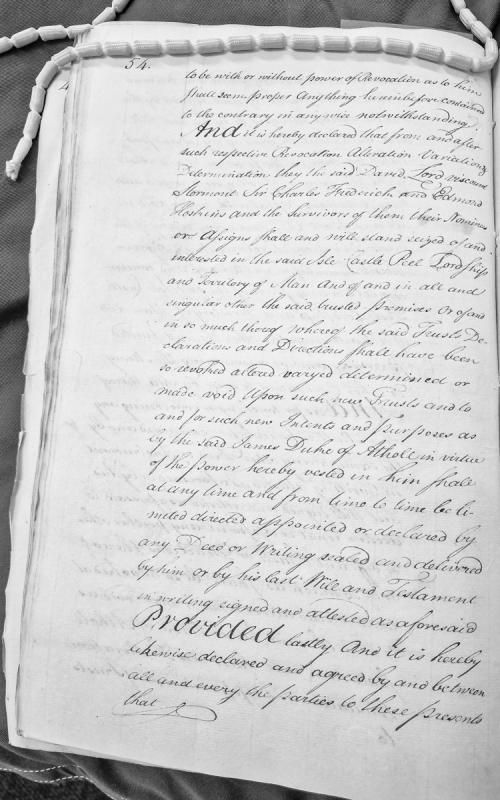 54.
to be with or without power of Revocation as to him
shall seem proper Anything hereinbefore contained
to the contrary in any wise notwithstanding
And it is hereby declared that from and after
such respective Revocation Alteration Variation
Determination they the said David Lord Viscount
Stormont Sir Charles Frederick and Edmond
Hoskins and the Survivors of them their Nominees
or Assigns shall and will stand seized of and
interested in the said Isle Castle Peel Lordship
and Territory of Man And of and in all and
singular other the said trusted premises Or of and
in so much thereof Whereof the said Trusts De-
clarations and Directions shall have been
so revoked altered varyed determined or
made void Upon such new Trusts and to
and for such new Intents and purposes as
by the said James Duke of Atholl in virtue
of the power hereby vested in him shall
at any time and from time to time be li-
mited directed appointed or declared by
any Deed or Writing sealed and delivered
by him or by his last Will and Testament
in writing signed and attested as aforesaid
Provided lastly And it is hereby
likewise declared and agreed by and between
all and every the parties to these presents
that